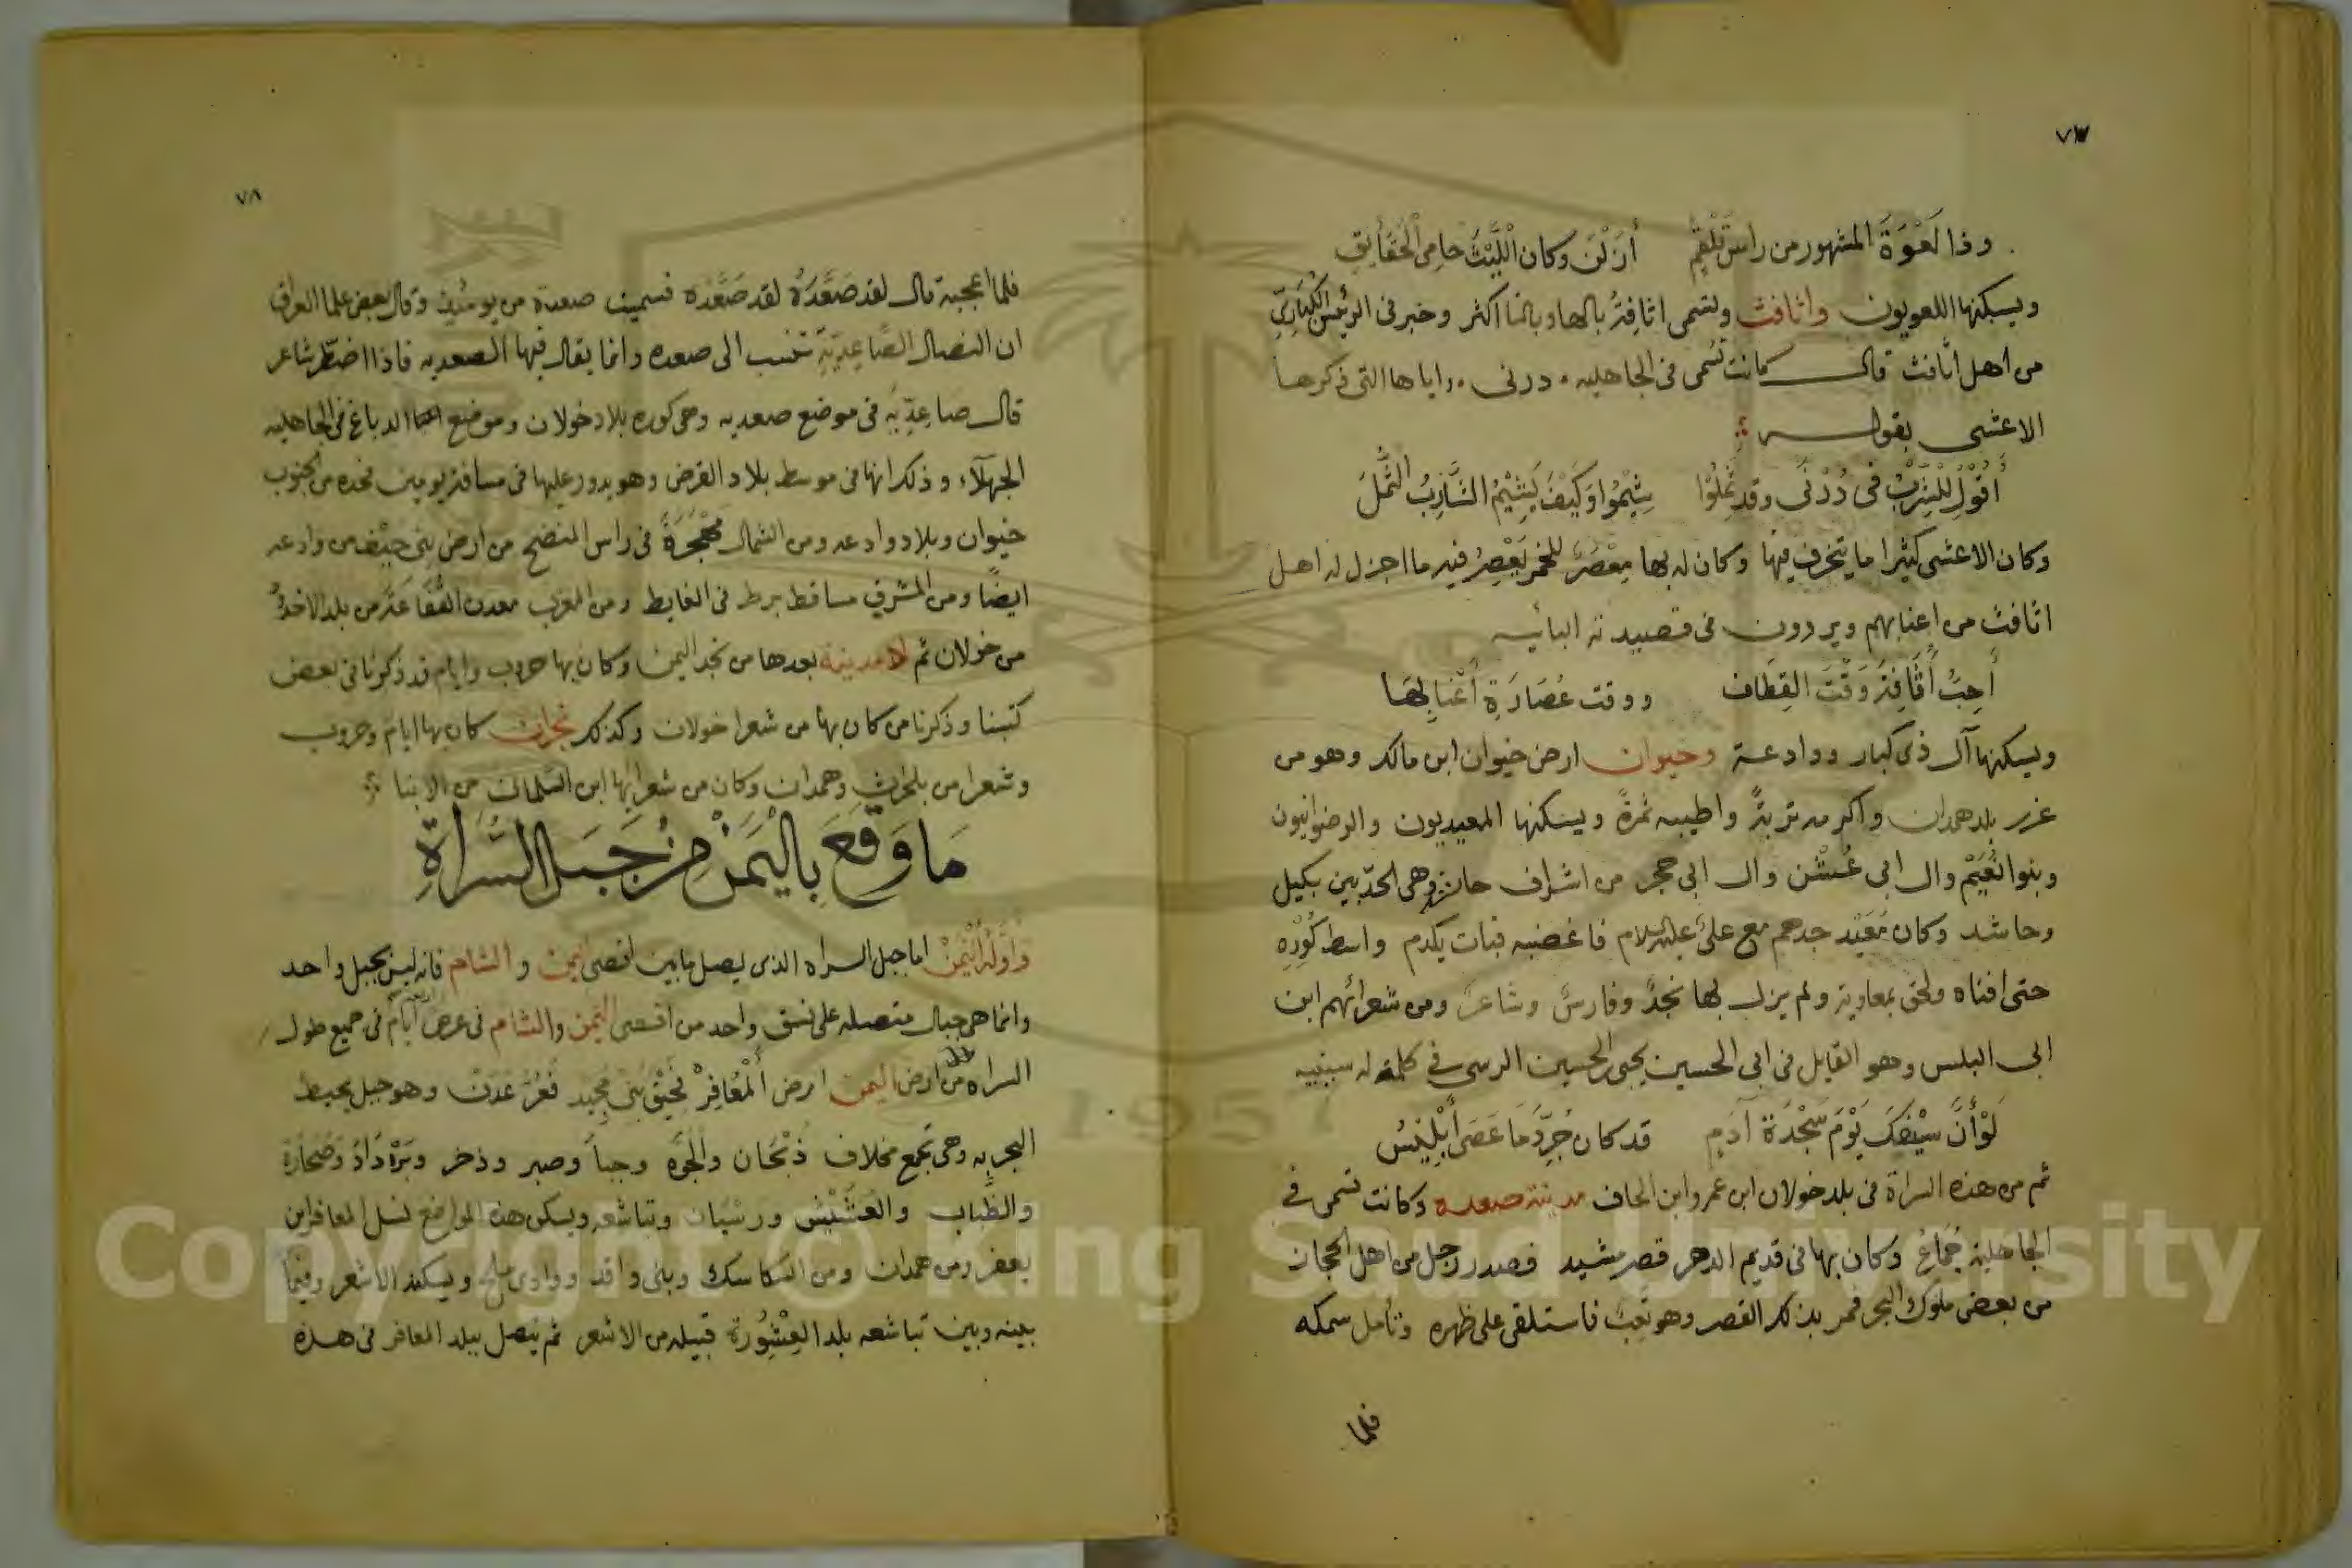 ٧٧
وذا لَعْوَةَ المشهور من راس تَلْقُمٍ أَزَلْنَ وكان اللَّيْثَ حامِى الحَقَايِقِ
ويسكنها اللعويون واثافت وتسمى اثافة بالها وبالتا اكثر وخبرنى الرئيس الكُبَارِىّ
من اهل اثافت قال كانت تسمى فى الجاهليه درنى واياها التى ذكرها
الاعشى بقوله
أَقُوْلُ لِلشَّرْبِ فى دُرْنَى وقد ثَمِلُوْا شِيْمُوا وَكَيْفَ يَشِيْمُ الشَّارِبُ الثَّمِلُ
وكان الاعشى كثيرا ما يتخرف فيها وكان له بها مِعْصَرٌ للخمر يَعْصِرُ فيه ما اجزل له اهل
اثافت من اعنابهم ويروون فى قصيدته البائيه
أُحِبُّ أُثَافِتَ وَقْتَ القِطَاف ووقت عُصَارَةِ أَعْنابِها
ويسكنها آل ذى كبار ووادعة وخيوان ارض خيوان ابن مالك وهو من
غرر بلد همدان واكرمه تربةً واطيبه ثمرةً ويسكنها المعيديون والرضوانيون
وبنوا نُعَيْم وال ابى عُشَّن وال ابى حجر من اشراف حاشد وهى الحدّ بين بكيل
وحاشد وكان مُعَيْد جدهم مع علىّ عليه السلام فاغضبه فبات يكدم واسط كُوْرِهِ
حتى افناه ولحق بمعاوية ولم يزل بها نجدٌ وفارسٌ وشاعرٌ ومن شعرائهم ابن
ابى البلس وهو القايل فى ابى الحسين يحيى بن الحسين الرسى فى كلمة له سينيه
لَوْ أَنَّ سَيْفَكَ يَوْمَ سَجْدَة آدَمٍ قد كان جُرِّدَ مَا عَصَى أَبْلِيْسُ
ثم من هذه السراة فى بلد خولان ابن عمرو ابن الحاف مدينة صعده وكانت تسمى فى
الجاهلية جُمَاعٌ وكان بها فى قديم الدهر قصر مشيد فصدر رجل من اهل الحجاز
من بعض ملوك البحر فمر بذلك القصر وهو تَعِبٌ فاستلقى على ظهره وتأمل سمكه
فلما
٧٨
فلما اعجبه قال لقد صَعَّدَهُ لقد صَعَّدَه فسميت صعدة من يومئذٍ وقال بعض علما العراق
ان النصال الصَّاعِدِيّةِ تنسب الى صعده وانما يقال فيها الصعديه فاذا اضطر شاعر
قال صاعِدِيّه فى موضع صعديه وهى كوره بلاد خولان وموضع الدباغ فى الجاهليه
الجهلآء وذلك انها فى موسط بلاد القرض وهو يدور عليها فى مسافة يومين فحده من الجنوب
خيوان وبلاد وادعه ومن الشمال مَهْجَرَةُ فى راس المنضح من ارض بنى حيف من وادعه
ايضًا ومن المشرق مساقط برط فى الغايط ومن المغرب معدن القُفَاعَة من بلد الاخدو
من خولان ثم لا مدينة بعدها من نجد اليمن وكان بها حروب وايام قد ذكرنا فى بعض
كتبنا وذكرنا من كان بها من شعرا خولان وكذلك نجران كان بها ايام وحروب
وشعرا من بلحرث وهمدان وكان من شعرايها ابن السلمان من الابنا
مَا وَقَعَ بِاليَمَنْ مِنْ جَبَل السَّرَاةِ
وَأَوَّلُهُ اليَمَنْ اما جبل السراه الذى يصل ما بين اقصى اليمن والشام فانه ليس بجبل واحد
وانما هى جبال متصله على نسق واحد من اقصى اليمن والشام فى عرض اربعة ايام فى جميع طول
السراه من ارض اليمن ارض المَعَافِرْ فَحَيْقِ بَنِىْ مَجِيْد فَعُرِّ عَدَنْ وهو جبل يحيط
البحر به وهى تجمع مخلاف ذُبْحَان والجُوَّه وجبأ وصبر وذخر وبَرْدَادْ وصُحَارَة
والظباب والعُشَيْش ورَسْيَان وتباشعه ويسكن هذه المواضع نسل المعافر ابن
يعفر ومن همدان ومن السكاسك وبنى واقد ووادى ملح ويسكنه الاشعر وفيما
بينه وبين تباشعه بلد العِشْوُرة قبيله من الاشعر ثم يتصل ببلد المعافر فى هذه
Copyright © King Saud University
1957